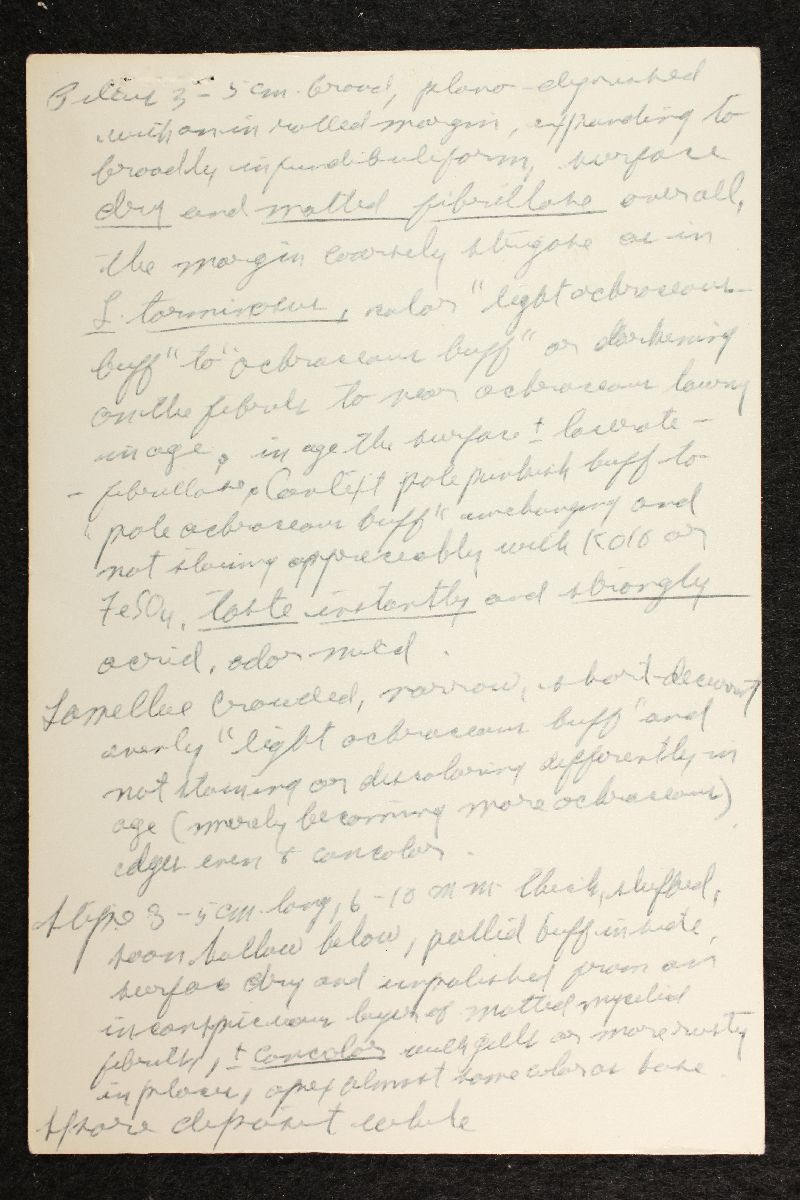 Pileus 3-5 cm. broad, plano-depressed
with an inrolled margin, expanding to
broadly infundibuliform, surface
dry and matted fibrillose overall,
the margin coarsely strigose as in
L. torminosus, color "light ochraceous-
buff" to "ochraceous buff" or darkening
on the fibrils to near ochraceous tawny
in age, in age the surface ± lacerate-
- fibrillose, Context pale pinkish buff to
"pale ochraceous buff" unchanging and
not staining appreciably with KOH or
FeSO4, taste instantly and strongly
acrid, odor mild.
Lamellae crowded, narrow, short-decurrent
evenly "light ochraceous buff" and
not staining or discoloring differently in
age (merely becoming more ochraceous)
edges even & concolor.
Stipe 3-5 cm. long, 6-10 mm. thick, stuffed,
soon hollow below, pallid buff inside,
surface dry and unpolished from an
inconspicuous layer of matted mycelial
fibrils, ± concolor with gills or more rusty
in places, apex almost same color as base.
Spore deposit white